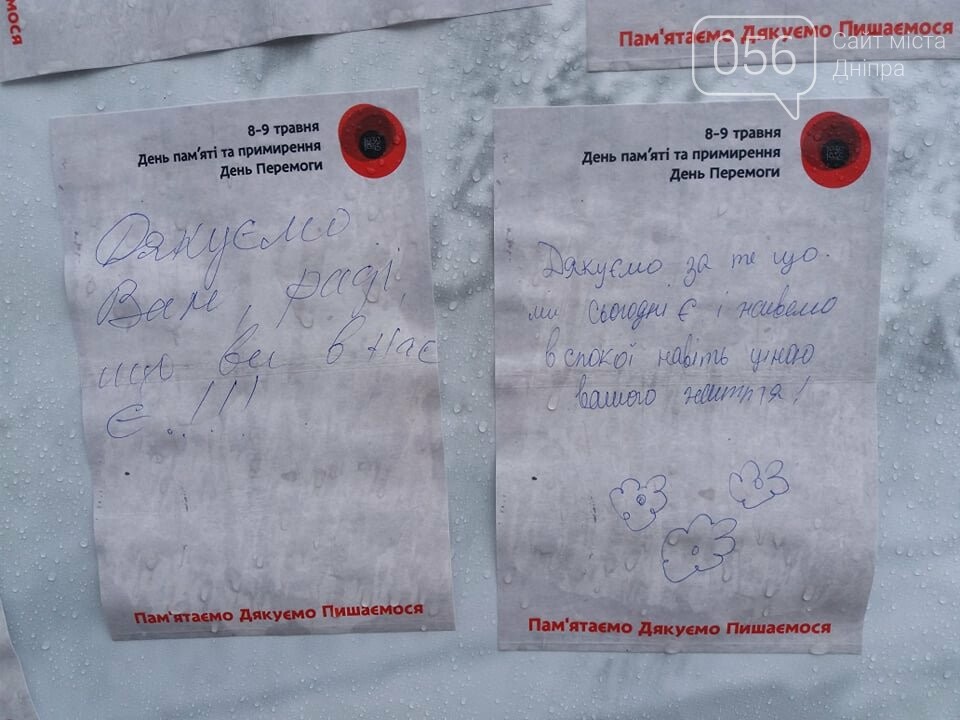 мося
Пам'ятаємо Дякуємо Пишаємося
056
Сайт міста
Дніпра
8-9 травня
День пам'яті та примирення
День Перемоги
Дякуємо
Вам, раді,
що ви в нас
є..!!!
Пам'ятаємо Дякуємо Пишаємося
8-9 травня
День пам'яті та примирення
День Перемоги
Дякуємо за те що
ми сьогодні є і живемо
в спокої навіть ціною
вашого життя!
Пам'ятаємо Дякуємо Пишаємося